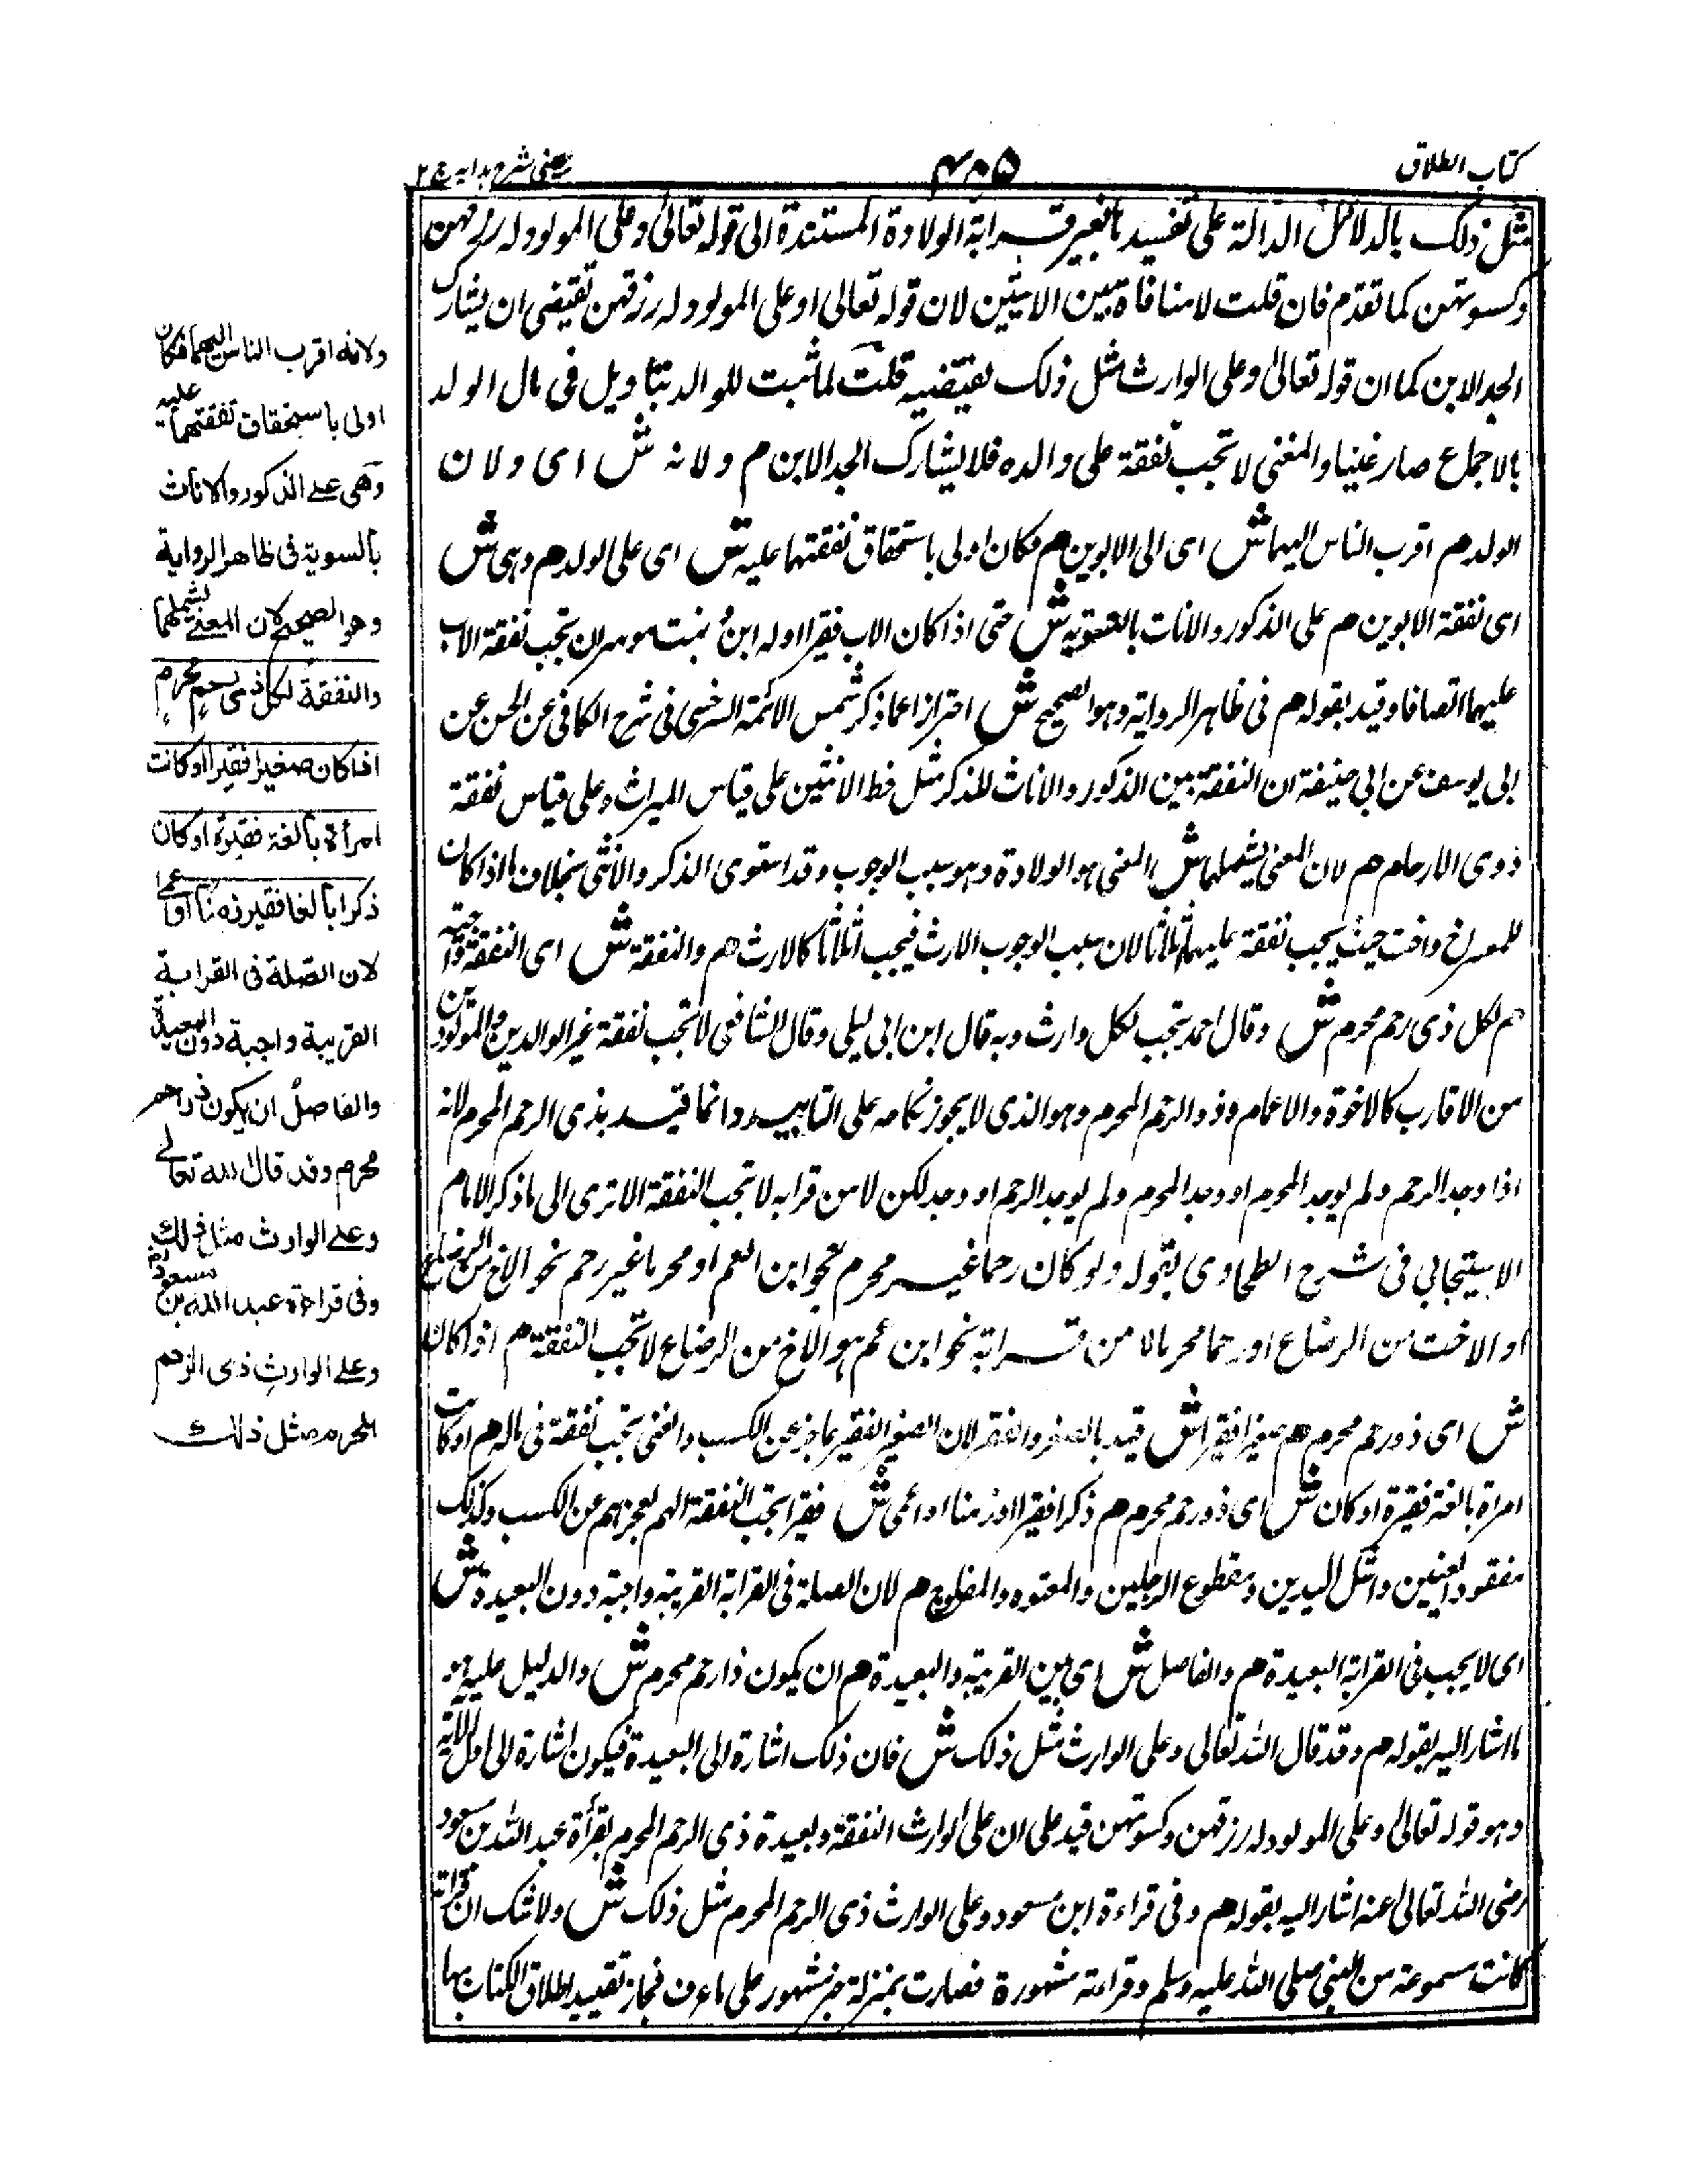 كتاب الطلاق
عینی شرح ہدایہ ج ۲
مثل ذلك بالدلائل الدالة على تقييد بالغير قرابة الولادة المستندة الى قوله تعالى وعلى المولود له رزقهن
وكسوتهن كما تقدم فان قلت لا منافاة بين الايتين لان قوله تعالى او على المولود له رزقهن تقيضى ان يشارك
الجد الابن كما ان قوله تعالى وعلى الوارث مثل ذلك يقتضيه قلت لما ثبت للوالد بتاويل فى مال الولد
بالاجماع صار غنيا والمغنى لا تجب نفقة على والده فلا يشارك الجد الابن م ولانه ش اى ولان
الولد هم اقرب الناس اليهما ش اى الى الابوين هم فكان اولى باستحقاق نفقتهما عليه ش اى على الولد هم وهى ش
اى نفقة الابوين هم على الذكور والاناث بالسوية ش حتى اذا كان الاب فقيرا وله ابن و بنت موسران تجب نفقة الاب
عليهما انصافا وقيد بقوله هم فى ظاهر الرواية وهو الصحيح ش احترازا عما ذكر شمس الائمة السرخسى فى شرح الكافى عن الحسن عن
ابى يوسف عن ابى حنيفة ان النفقة بين الذكور والاناث للذكر مثل حظ الانثيين على قياس الميراث وعلى قياس نفقة
ذوى الارحام هم لان المعنى يشملهما ش المعنى هو الولادة وهو سبب الوجوب وقد استوى الذكر والانثى بخلاف ما اذا كان
للمعسر اخ واخت حيث يجب نفقة عليهما اثلاثا لان سبب الوجوب الارث فيجب اثلاثا كالارث هم والنفقة ش اى النفقة واجبة
هم لكل ذى رحم محرم ش وقال احمد تجب لكل وارث وبه قال ابن ابى ليلى وقال الشافعى لا تجب نفقة غير الوالدين والمولودين
من الاقارب كالاخوة والاعمام وذو الرحم المحرم وهو الذى لا يجوز نكاحه على التابيد وانما قيد بذى الرحم المحرم لانه
اذا وجد الرحم ولم يوجد المحرم او وجد المحرم ولم يوجد الرحم او وجد لكن لا من قرابه لا تجب النفقة الا ترى الى ما ذكر الامام
الاسبيجابى فى شرح الطحاوى بقوله ولو كان رحما غير محرم نحو ابن العم او محرما غير رحم نحو الاخ من الرضاع
او الاخت من الرضاع او رحما محرما لا من قرابة نحو ابن عم هو الاخ من الرضاع لا تجب النفقة م اذا كان
ش اى ذو رحم محرم هم صغيرا فقيرا ش قيد بالصغر والفقر لان الصغير الفقير عاجز عن الكسب والغنى تجب نفقة فى ماله هم او كانت
امراة بالغة فقيرة او كان ش اى ذو رحم محرم هم ذكرا فقيرا او زمنا او اعمى ش فقيرا تجب النفقة لهم لعجزهم عن الكسب وكذلك
مفقود العينين واشل اليدين ومقطوع الرجلين والمعتوه والمفلوج هم لان الصلة فى القرابة القريبة واجبة دون البعيدة ش
اى لا يجب فى القرابة البعيدة هم والفاصل ش اى بين القريبة والبعيدة هم ان يكون ذا رحم محرم ش والدليل عليه هو
ما اشار اليه بقوله هم وقد قال الله تعالى وعلى الوارث مثل ذلك ش فان ذلك اشارة الى البعيدة فيكون اشارة الى اول الاية
وهو قوله تعالى وعلى المولود له رزقهن وكسوتهن قيد على ان على الوارث النفقة وبعيدة ذى الرحم المحرم بقرأة عبد الله بن مسعود
رضى الله تعالى عنه اشار اليه بقوله هم وفى قراءة ابن مسعود وعلى الوارث ذى الرحم المحرم مثل ذلك ش ولا شك ان قراته
كانت مسموعة من النبى صلى الله عليه وسلم وقراءته مشهورة فصارت بمنزلة خبر مشهور على ما عرف فجاز تقييد اطلاق الكتاب بها
ولانه اقرب الناس اليهما فكان
اولى باستحقاق نفقتهما عليه
وهى على الذكور والاناث
بالسوية فى ظاهر الرواية
وهو الصحيح لان المعنى يشملهما
والنفقة لكل ذى رحم محرم
اذا كان صغيرا فقيرا او كانت
امرأة بالغة فقيرة او كان
ذكرا بالغا فقيرا زمنا او اعمى
لان الصلة فى القرابة
القريبة واجبة دون البعيدة
والفاصل ان يكون ذا رحم
محرم وقد قال الله تعالى
وعلى الوارث مثل ذلك
وفى قراءة عبد الله بن مسعود
وعلى الوارث ذى الرحم
المحرم مثل ذلك